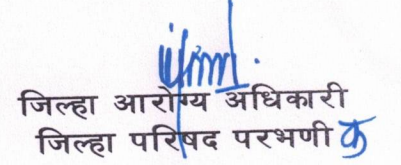 जिल्हा आरोग्य अधिकारी
जिल्हा परिषद परभणी क